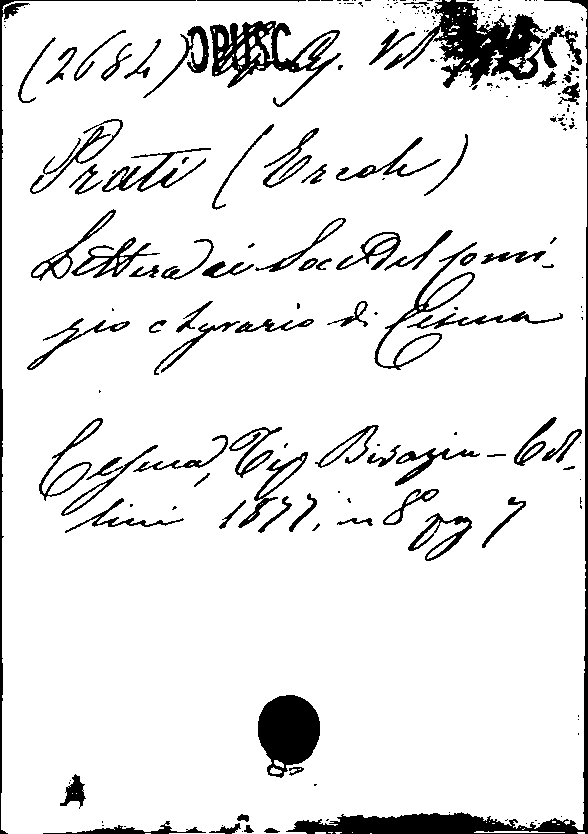 (2684) OPUSC
Prati (Ercole)
Lettera ai Soci del Comi-
zio Agrario di Cesena
Cesena, Tip Bisazia - Col-
lini 1877, in 8º pg 7
A